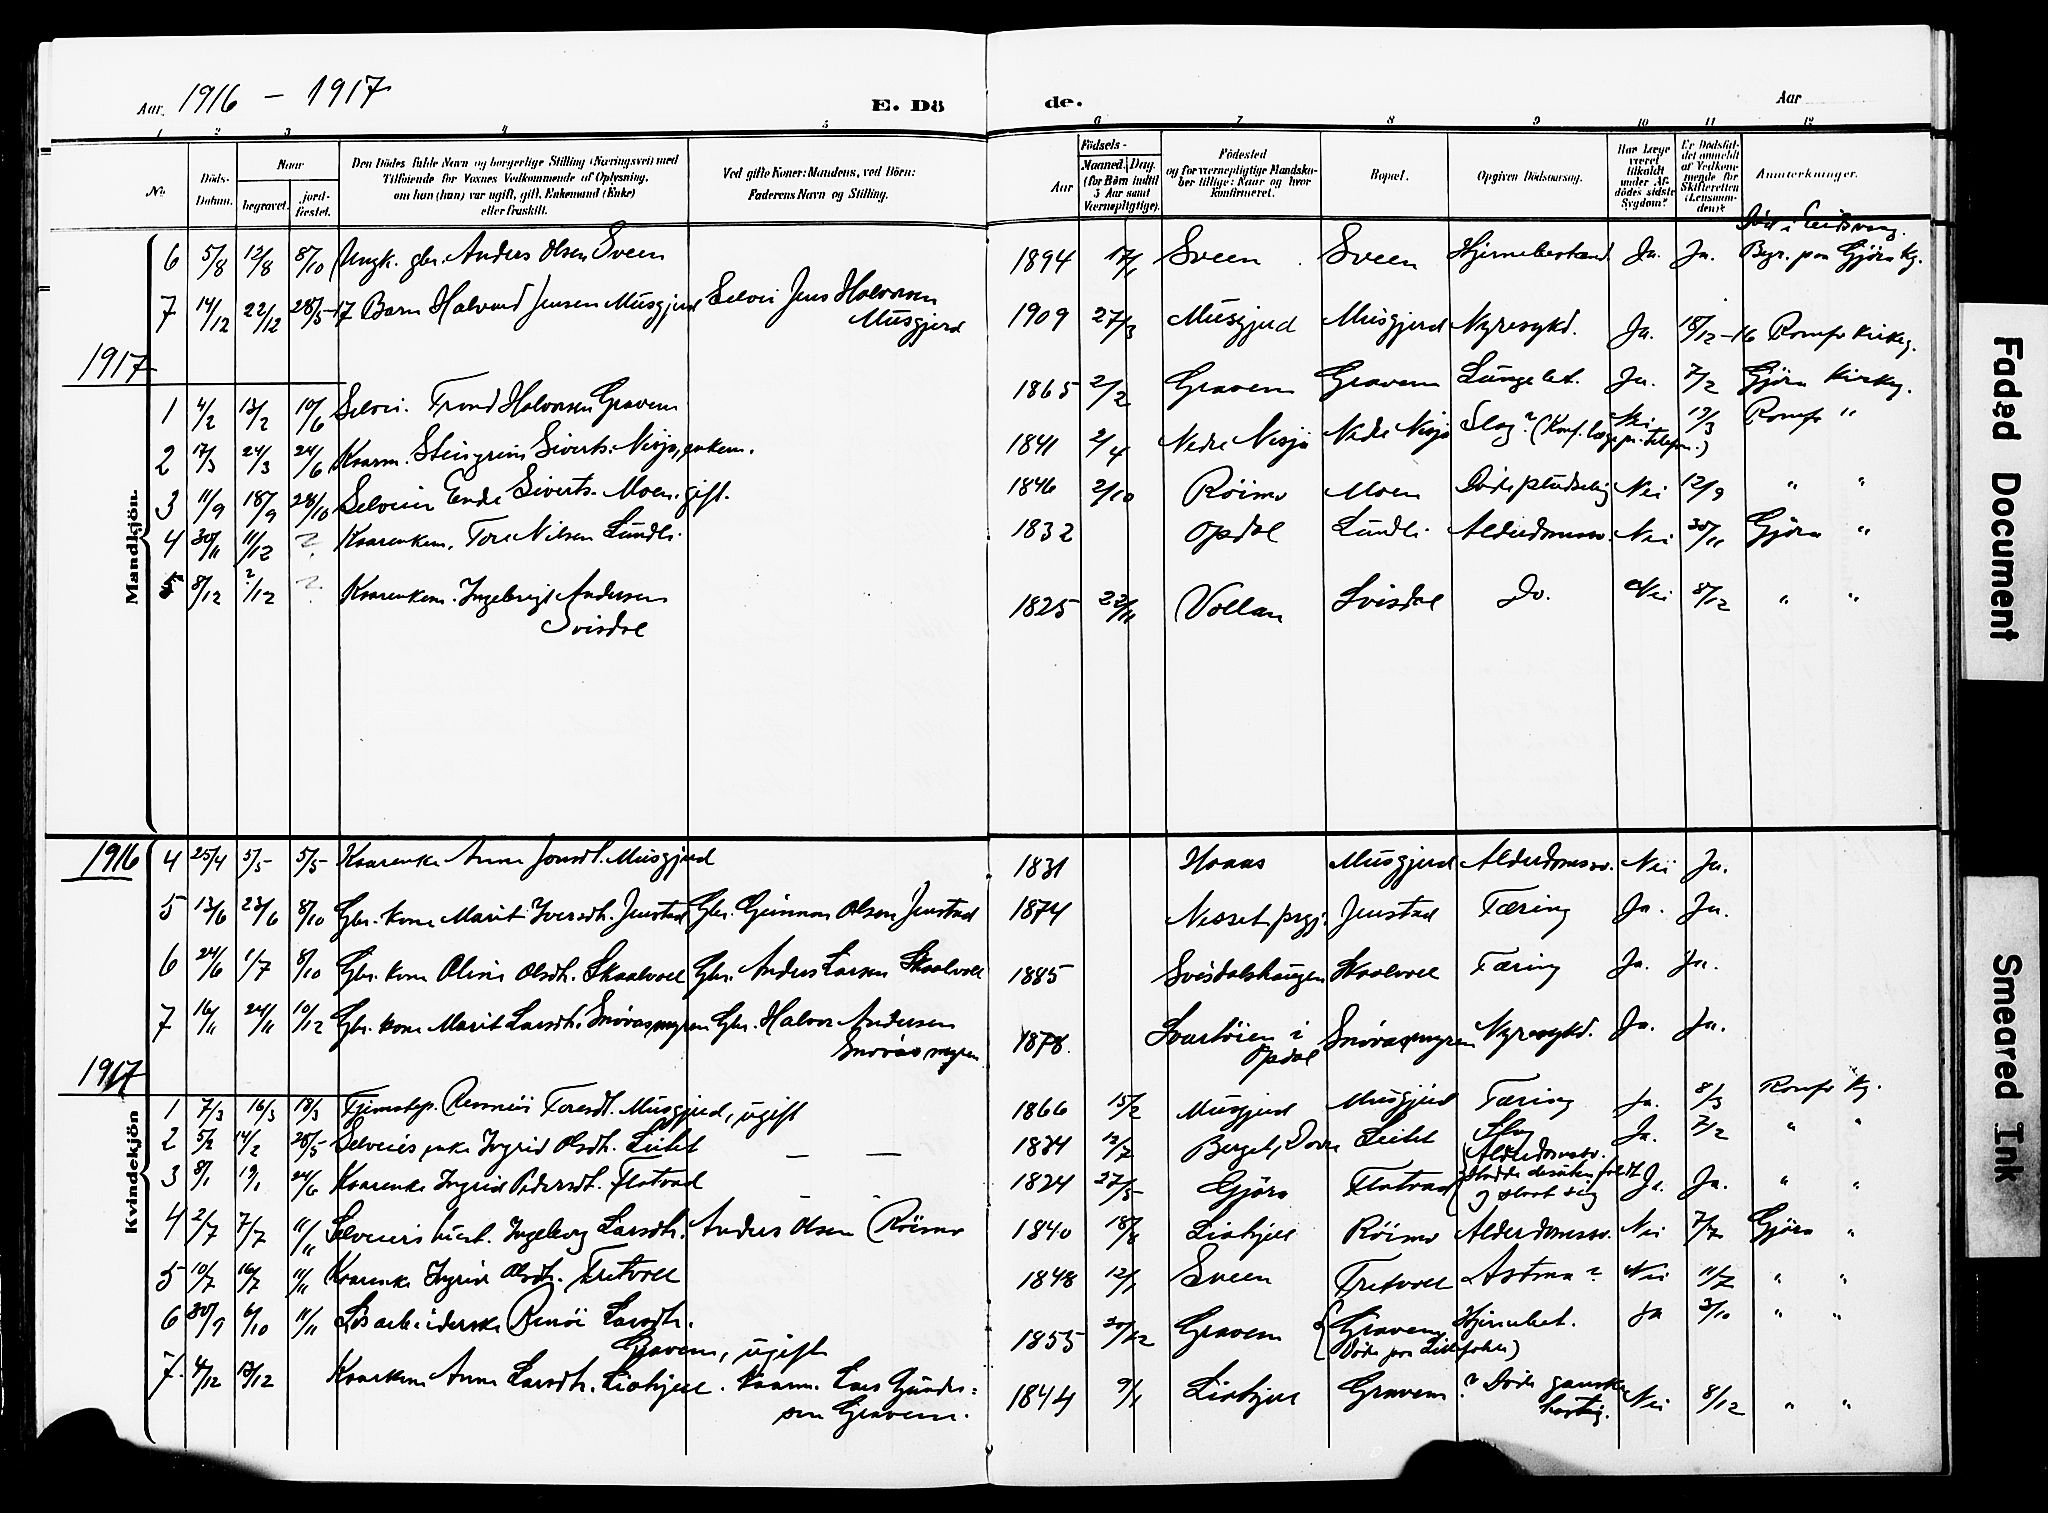 Aar. 1916 – 1917
E. Dö
de.
Aar
1 2 3 4 5 6 7 8 9 10 11 12
No.
Döds-
Datum.
Naar
begravet.
jord-
fæstet.
Den Dödes fulde Navn og borgerlige Stilling (Næringsvei) med
Tilföiende for Voxnes Vedkommende af Oplysning,
om han (hun) var ugift, gift, Enkemand (Enke)
eller fraskilt.
Ved gifte Koner: Mandens, ved Börn:
Faderens Navn og Stilling.
Födsels-
Aar
Maaned. Dag.
(for Börn indtil
3 Aar samt
Værnepligtige).
Födested
og for værnepligtige Mandsku-
ber tillige: Naar og hvor
konfirmeret.
Bopæl.
Opgiven Dödsaarsag.
Har Læge
været
tilkaldt
under Af-
dödes sidste
Sygdom?
Er Dödsfal-
det anmeldt
af Vedkom-
mende for
Skifteretten
(Lensman-
den)?
Anmærkninger.
Mandkjön.
6 5/8 12/8 8/10 Ungk. gbr. Anders Olsen Sveen 1894 17/1 Sveen Sveen Hjernebetænd Ja. Ja. Död i Eidsvaag.
Begr. paa Gjöra Kg.
7 14/12 22/12 28/5-17 Barn Halvard Jensen Musgjerd Selvei Jens Halvorsen
Musgjerd 1909 27/3 Musgjerd Musgjerd Nyresykd. Ja. 18/12-16 Romfo Kirkeg.
1917
1 4/2 13/2 10/6 Selvei. Trond Halvorsen Gravem 1865 2/2 Gravem Gravem Lungebet. Ja. 7/2 Gjöra Kirkeg.
2 17/3 24/3 24/6 Kaarm. Steingrim Siverts. Nisjo, enkem. 1841 2/4 Nedre Nisjö Nedre Nisjö Slag? (Konf. læge pr. telefon.) Nei 17/3 Romfo "
3 11/9 18/9 28/10 Selveier Ende Siverts. Moen. gift. 1846 2/10 Röimo Moen Döde pludselig Nei 12/9 " "
4 30/11 11/12 ? Kaarenkem. Tore Nilsen Lundli. 1832 Opdal Lundli. Alderdomssv. Nei 30/11 Gjöra "
5 8/12 ?/12 ? Kaarenkem. Ingebrigt Andersen
Svisdal 1825 22/11 Vollan Svisdal Do. Nei 8/12 " "
Kvindekjön
1916
4 25/4 5/5 5/5 Kaarenke Anne Jonsdt. Musgjerd 1831 Hoaas Musgjerd Alderdomssv. Nei Ja.
5 13/6 23/6 8/10 Gbr. kone Marit Iversdt. Jenstad Gbr. Gunnar Olsen Jenstad 1874 Nesset prgj. Jenstad Tæring Ja. Ja.
6 24/6 1/7 8/10 Gbr. kone Oline Olsdt. Skaalvoll Gbr. Anders Larsen Skaalvoll 1885 Svisdalshaugen Skaalvoll Tæring Ja. Ja.
7 16/11 24/11 10/12 Gbr. kone Marit Larsdt. Snövasmyren Gbr. Halvor Andersen
Snövasmyren 1878. Svartöien i
Opdal Snövasmyren Nyresykd. Ja. Ja.
1917
1 7/3 16/3 18/3 Tjenestep. Rennöi Toresdt. Musgjerd, ugift 1866 15/2 Musgjerd Musgjerd Tæring Ja. 8/3 Romfo Kg.
2 5/2 14/2 28/5 Selveies enke Ingrid Olsdt. Lutet — — 1834 12/7 Dovre Lutet Slag Ja. 7/2 " "
3 8/1 19/1 24/6 Kaarenke Ingrid Pedersdt. Flatvad 1824 27/5 Gjöra Flatvad Alderdomssv.
Hadde desuten faldt
og slaat sig Ja. Ja. " "
4 2/7 7/7 11/11 Selveiers hust. Ingeborg Larsdt. Anders Olsen Röimo 1840 18/8 Liahjell Röimo Alderdomssv. Nei 7/7 Gjöra "
5 10/7 16/7 11/11 Kaarenke Ingrid Olsdt. Tretvoll 1848 12/1 Sveen Tretvoll Astma? Nei 11/7 " "
6 30/9 6/10 11/11 Lösarbeiderske Rennöi Larsdt.
Gravem, ugift 1855 20/12 Gravem Gravem
Döde paa Lilefale) Hjernebet. Ja 3/10 " "
7. 4/12 13/12 Kaarkone Anne Larsdt. Liahjell. Kaarm. Lars Gunder-
sen Gravem. 1844 9/1 Liahjell Gravem ? Döde ganske
hastig. Nei 8/12 " "
Faded Document
Smeared Ink